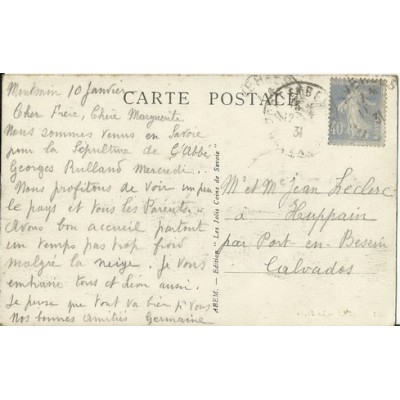 10 Janvier
CARTE POSTALE
Cher Frère, Chère Marguerite
Nous sommes venus en Savoie
pour la Sépulture de l'Abbé
Georges Rulland Mercredi.
Nous profitons de voir un peu
le pays et tous les Parents
Avons bon accueil partout
un temps pas trop froid
malgré la neige. Je vous
embrasse tous et Léon aussi.
Je pense que tout va bien pr vous
Nos bonnes amitiés Germaine
ABEM. - Edition "Les Jolis Coins de Savoie"
Mr et Me Jean Leclerc
à Huppain
par Port en Bessin
Calvados
40
31